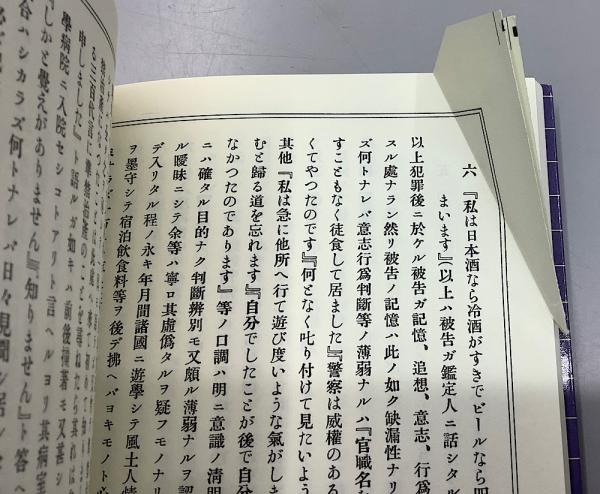 六　『私は日本酒なら冷酒がすきでビールなら四
まいます』(以上ハ被告ガ鑑定人ニ話シタル
以上犯罪後ニ於ケル被告ガ記憶、追想、意志、行爲
スル處ナラン然リ被告ノ記憶ハ此ノ如ク缺漏性ナリ
ズ何トナレバ意志行爲判斷等ノ薄弱ナルハ『官職名な
すこともなく徒食して居ました』『警察は威權のある
くてやつたのです』『何となく叱り付けて見たいよう
其他『私は急に他所へ行て遊び度いような氣がしま
むと歸る道を忘れます』『自分でしたことが後で自分
なかつたのであります』等ノ口調ハ明ニ意識ノ淸明
ニハ確タル目的ナク判斷辨別モ又頗ル薄弱ナルヲ認
ル曖昧ニシテ余等ハ寧ロ其虛僞タルヲ疑フモノナリ
デ入リタル程ノ永キ年月間諸國ニ遊學シテ風土人情
ヲ墨守シテ宿泊飮食料等ヲ後デ拂ヘバヨキモノト必
る三百代言に
申しました』ト語ルガ如キハ前後撞著モ又甚シ
學病院ニ入院セシコトアリト言ヘルヨリ其病室
しかと覺えがありません』『知りません』ト答ヘ
谷ハシカラズ何トナレバ日々見聞シ居シ